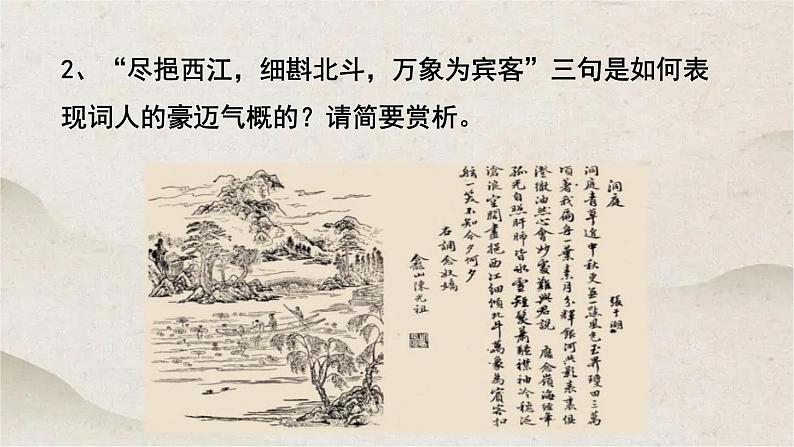 2、“尽挹西江，细斟北斗，万象为宾客”三句是如何表
现词人的豪迈气概的？请简要赏析。
洞庭
張于湖
洞庭青草近中秋更無一點風色玉界瓊田三萬
頃著我扁舟一葉素月分輝銀河共影表裏俱
澄澈油然心會妙處難與君說 應念嶺海經年
孤光自照肝肺皆冰雪短髮蕭 襟袖冷穩泛
滄浪空闊盡挹西江細傾北斗萬象為賓客扣
舷一笑不知今夕何夕
右調念奴嬌
山陳光祖